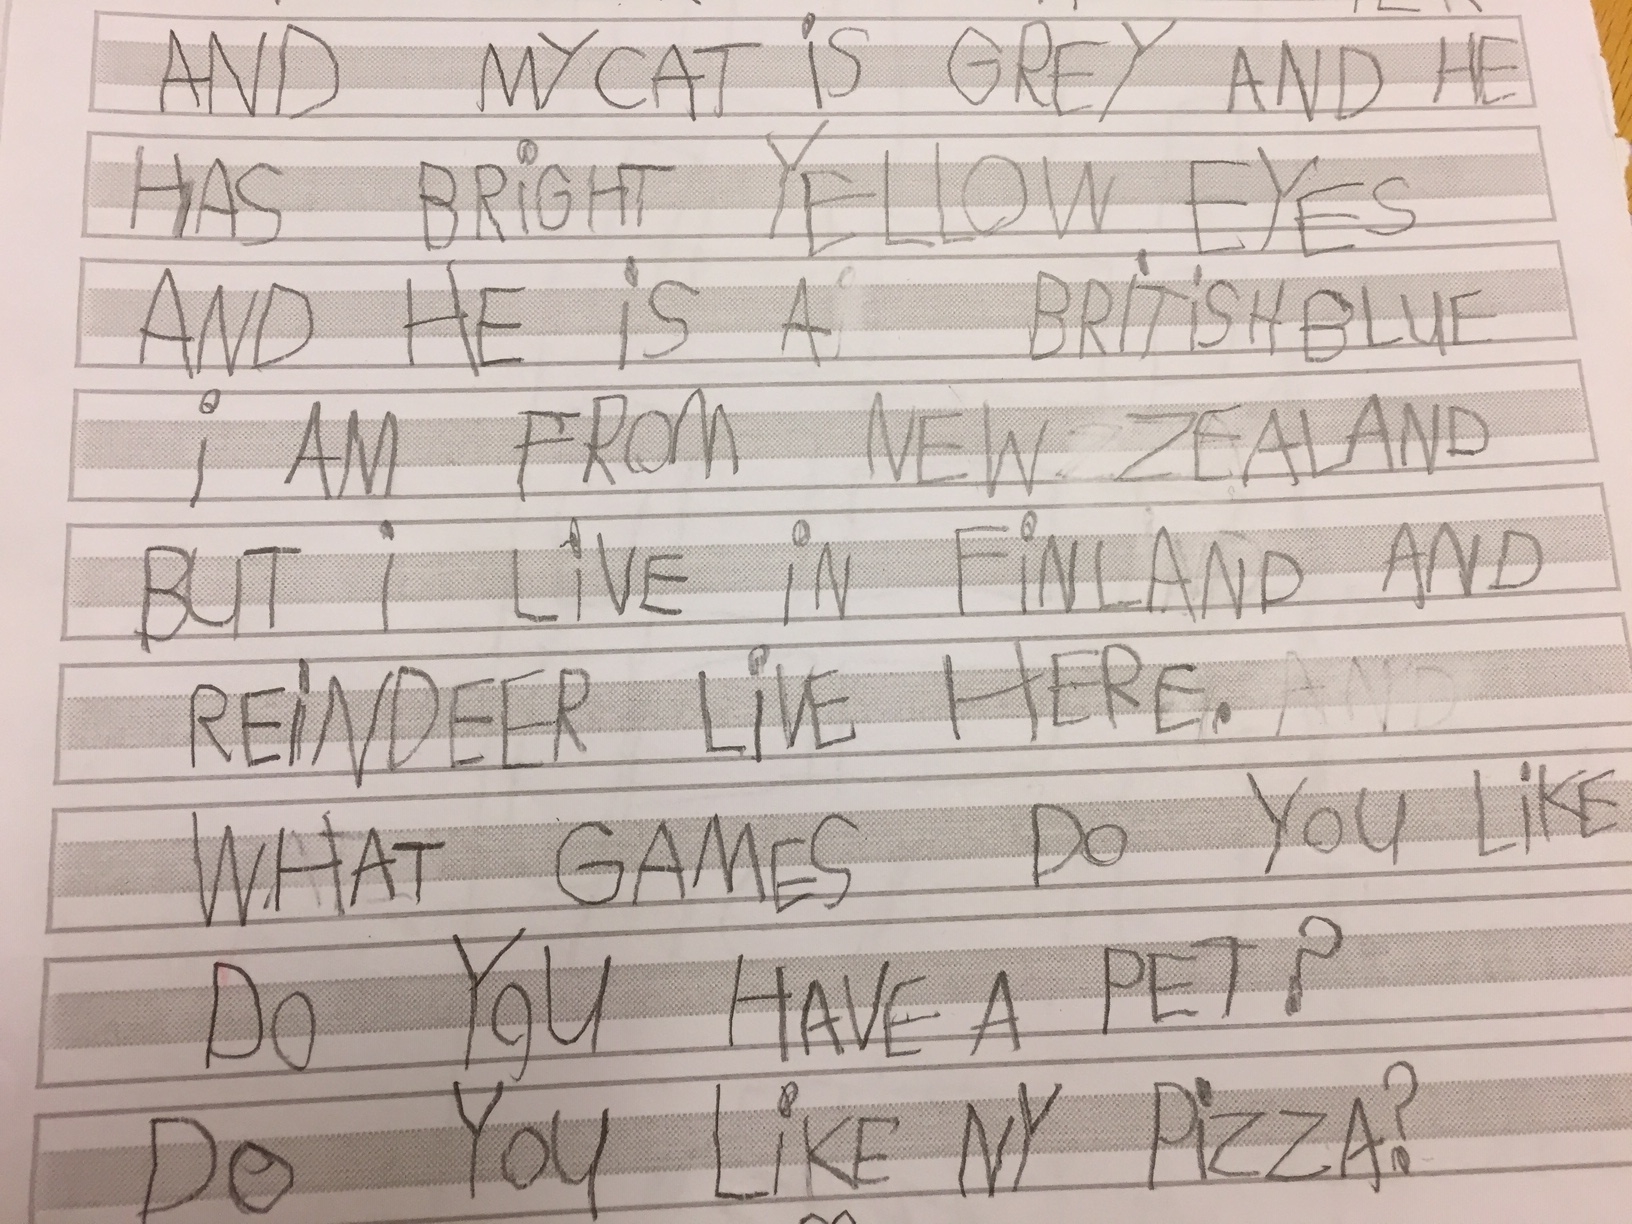 AND MY CAT iS GREY AND HE
HAS BRiGHT YELLOW EYES
AND HE iS A BRiTiSH BLUE
i AM FROM NEW ZEALAND
BUT i LiVE iN FiNLAND AND
REiNDEER LiVE HERE.
WHAT GAMES DO YOU LiKE
DO YOU HAVE A PET?
DO YOU LiKE NY PiZZA?